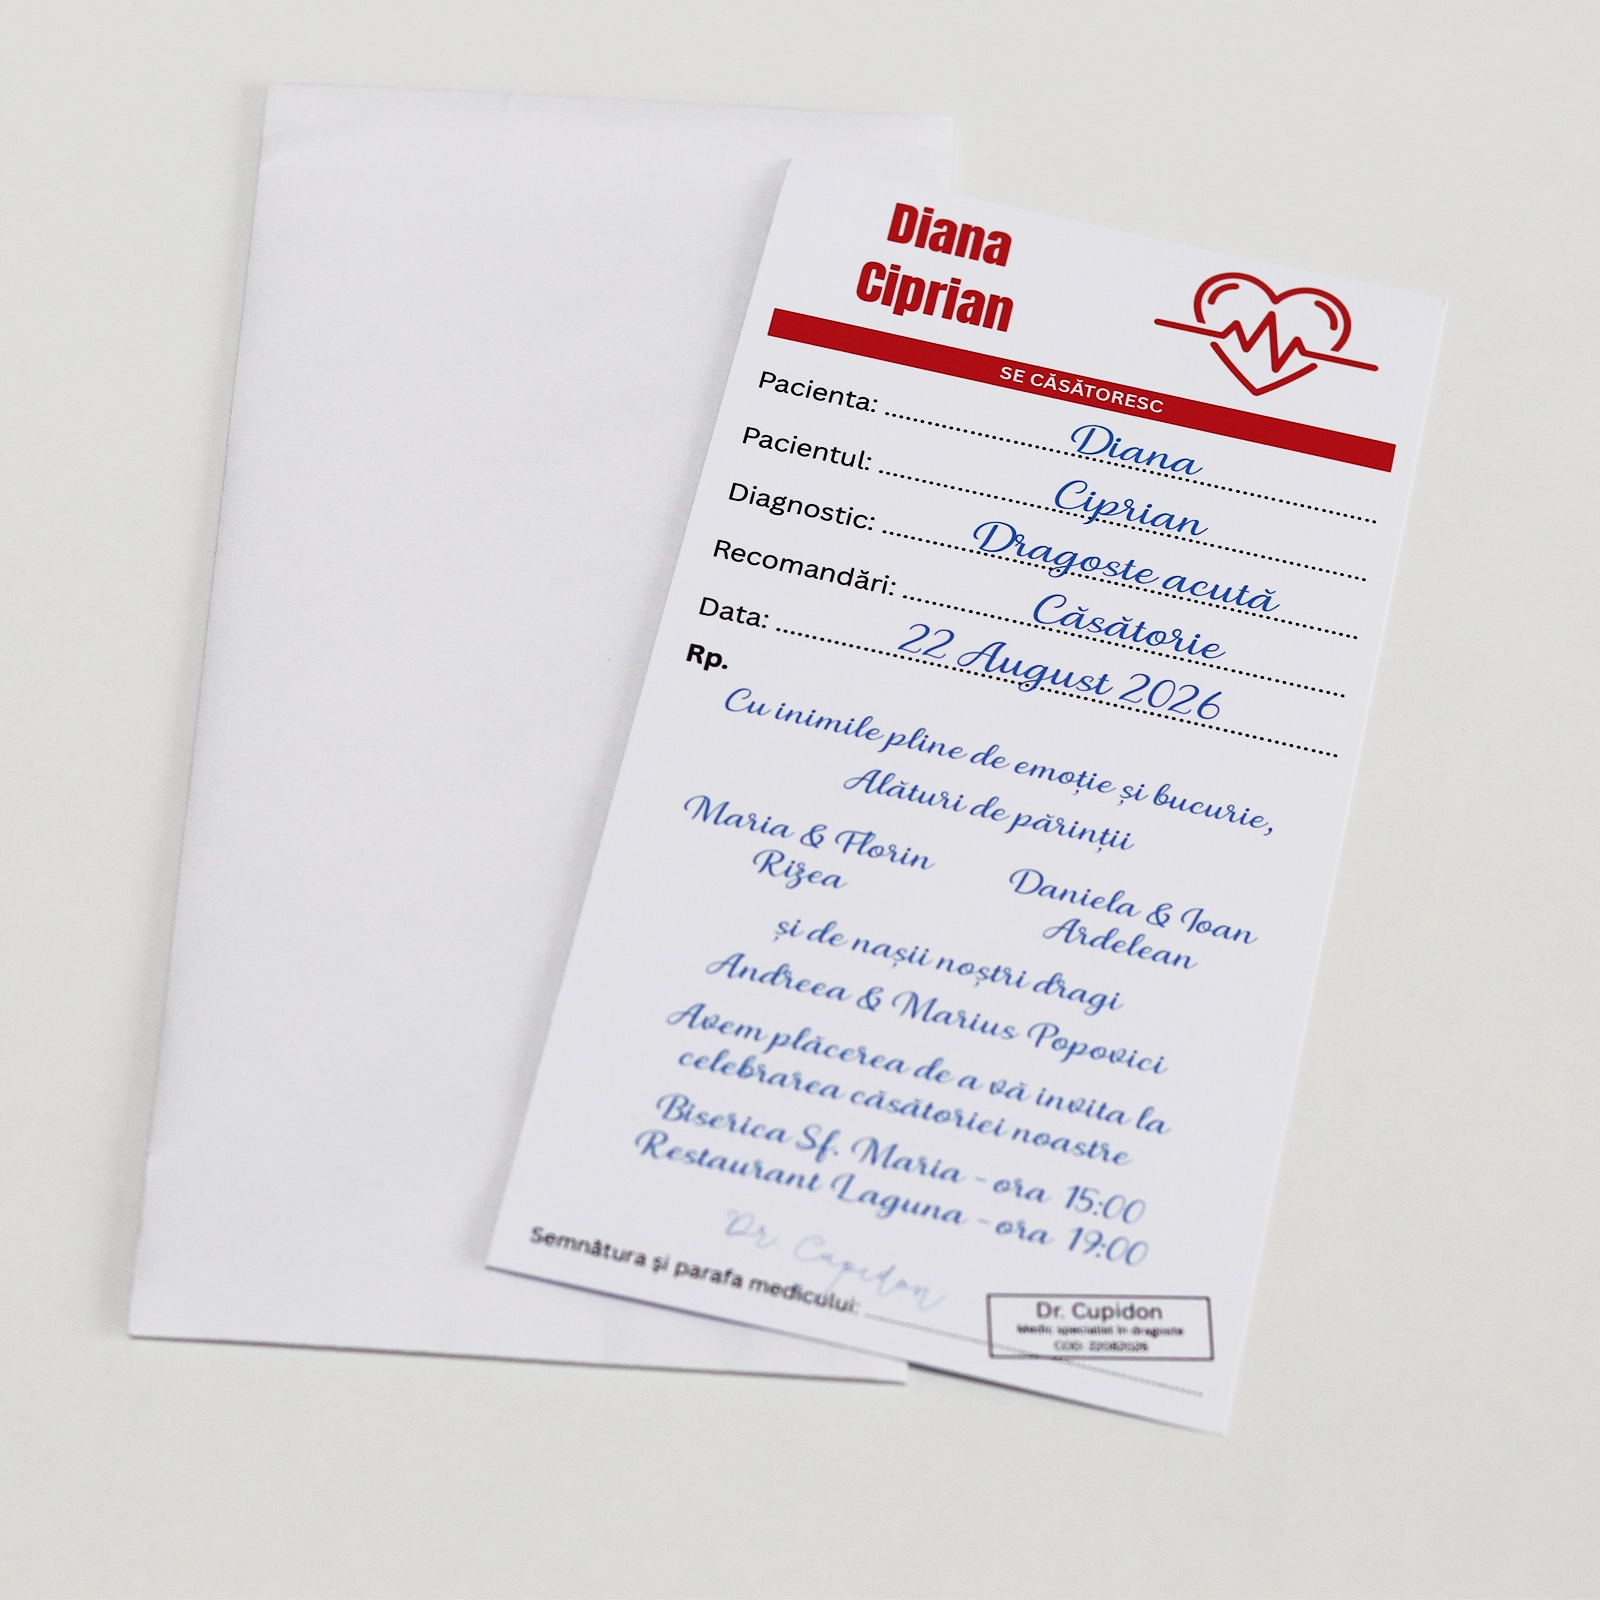 Diana
Ciprian
SE CĂSĂTORESC
Pacienta: Diana
Pacientul: Ciprian
Diagnostic: Dragoste acută
Recomandări: Căsătorie
Data: 22 August 2026
Rp.
Cu inimile pline de emoție și bucurie,
Alături de părinții
Maria & Florin
Rizea
Daniela & Ioan
Ardelean
și de nașii noștri dragi
Andreea & Marius Popovici
Avem plăcerea de a vă invita la
celebrarea căsătoriei noastre
Biserica Sf. Maria - ora 15:00
Restaurant Laguna - ora 19:00
Dr Cupidon
Semnătura și parafa medicului:
Dr. Cupidon
Medic specialist în dragoste
COD: 22082026